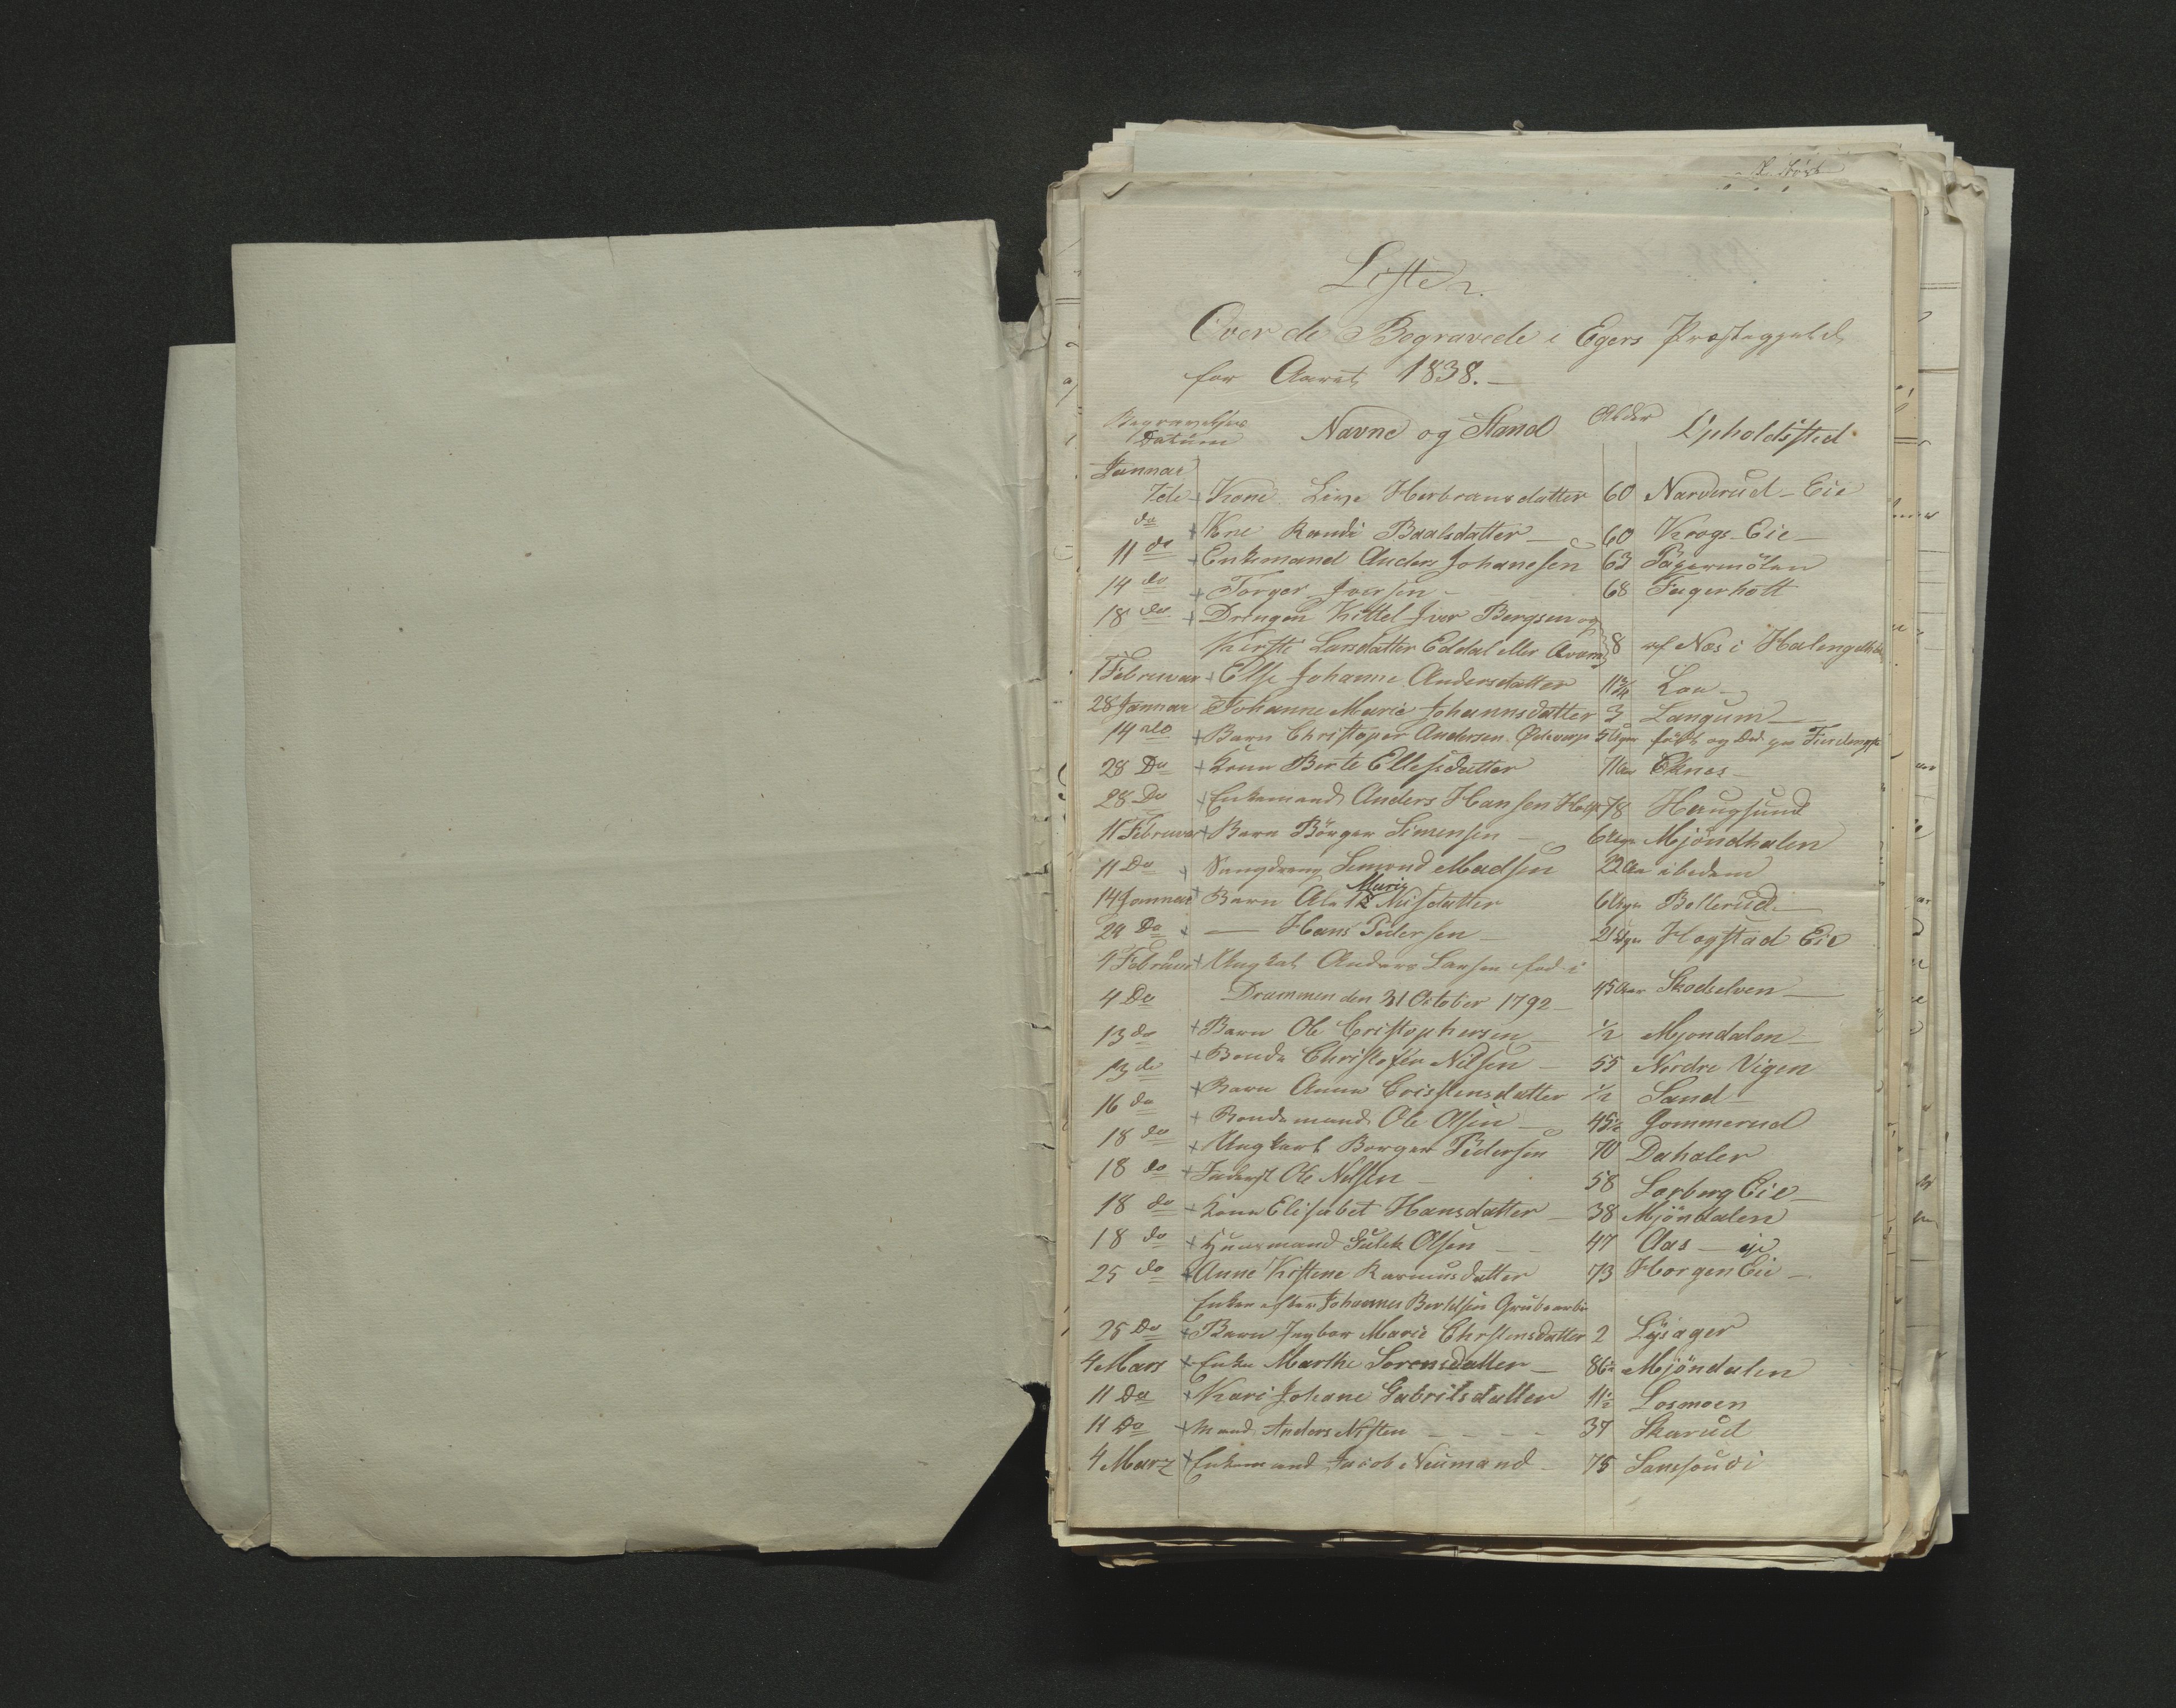 Liste
Over de Begravede i Egers Præstegjæld
for Aaret 1838.
Begravelses Datum Navne og Stand Alder Opholdssted
Januar
7de Kone Lise Herbransdatter 60 Narverud - Eie
do Kne Randi Paalsdatter 60 Krogs-Eie
11 do Enkemand Anders Johanesen 63
14 do Torger Iversen 68 Fagerholt
18 do Drengen Kittel Iver Bergsen og
Kirsti Larsdatter Eddal eller 8 af Næs i
Februar Else Johanne Andersdatter 11 3/4
28 Januar Johanne Marie Johannsdatter 3 Langum
14 do Barn Christoper Andersen 5 Uger født og Død paa
28 Do Kone Berte Ellefsdatter 71 Aar Øknes
28 Do Enkemand Anders Hansen 78 Haugsund
11 Februar Barn Börger Simensen 6 Uger Mjöndhalen
11 Do Ungdreng Simond Madsen 22 Aar ibedem
14 Januar Barn Marie Nilsdatter 6 Uger Bollerud
29 Do — Hans Pedersen 21 Uger Hogstad Eie
4 Februar Ungkal Anders Larsen fød i
4 Do Drammen den 31 October 1792 45 Aar Skodselven
13 do Barn Ole Cristophersen 1/2 Mjondalen
13 do Bonde Christofer Nilsen 55 Nordre Vigen
16 do Barn Anne Cristensdatter 1/2 Sand
Bondemand Ole Olsen 45 1/2 Gommerud
18 do Ungkarl Borger Pedersen 70 Dahaler
18 do Ole Nilsen 58 Lorberg Eie
18 do Kone Elisabet Hansdatter 38 Mjöndalen
18 do Huusmand Gulek Olsen 47 Aas - eje
25 do Anne Kistene Rasmusdatter 73 Horgen Eie
Enken efter Johannes Bertelsen Grubearbr
25 Do Barn Ingbor Marie Chrstensdatter 2 Lysager
4 Mars Enke Marthe Sorensdatter 86 1/2 Mjöndalen
11 Do Kari Johane Gabrilsdatter 11 1/2 Losmoen
11 Do Mand Anders Nilsen 37 Skarud
4 Marz Enkemand Jacob Neumand 75 Sanssouci